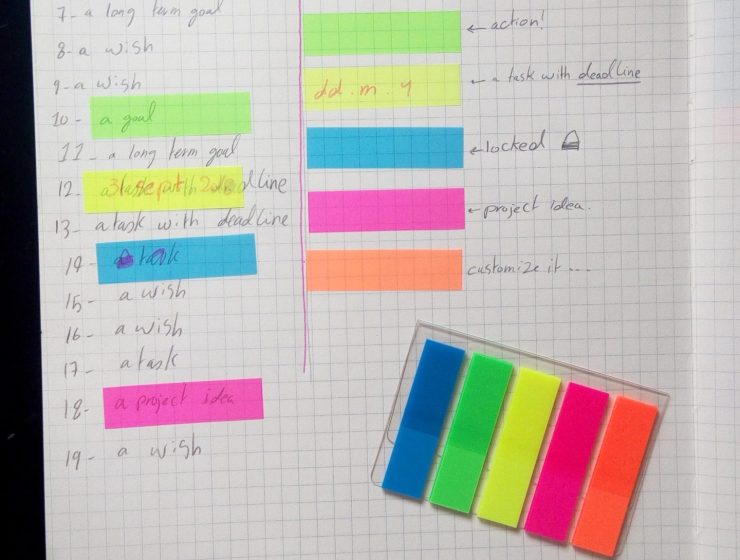 7- a long term goal
8- a wish
9- a wish
10- a goal
11- a long term goal
12. a task with deadline
13- a task with deadline
14- a task
15- a wish
16- a wish
17- a task
18- a project idea
19- a wish
← action!
dd.m.y
← a task with deadline
← locked
← project idea.
customize it ...